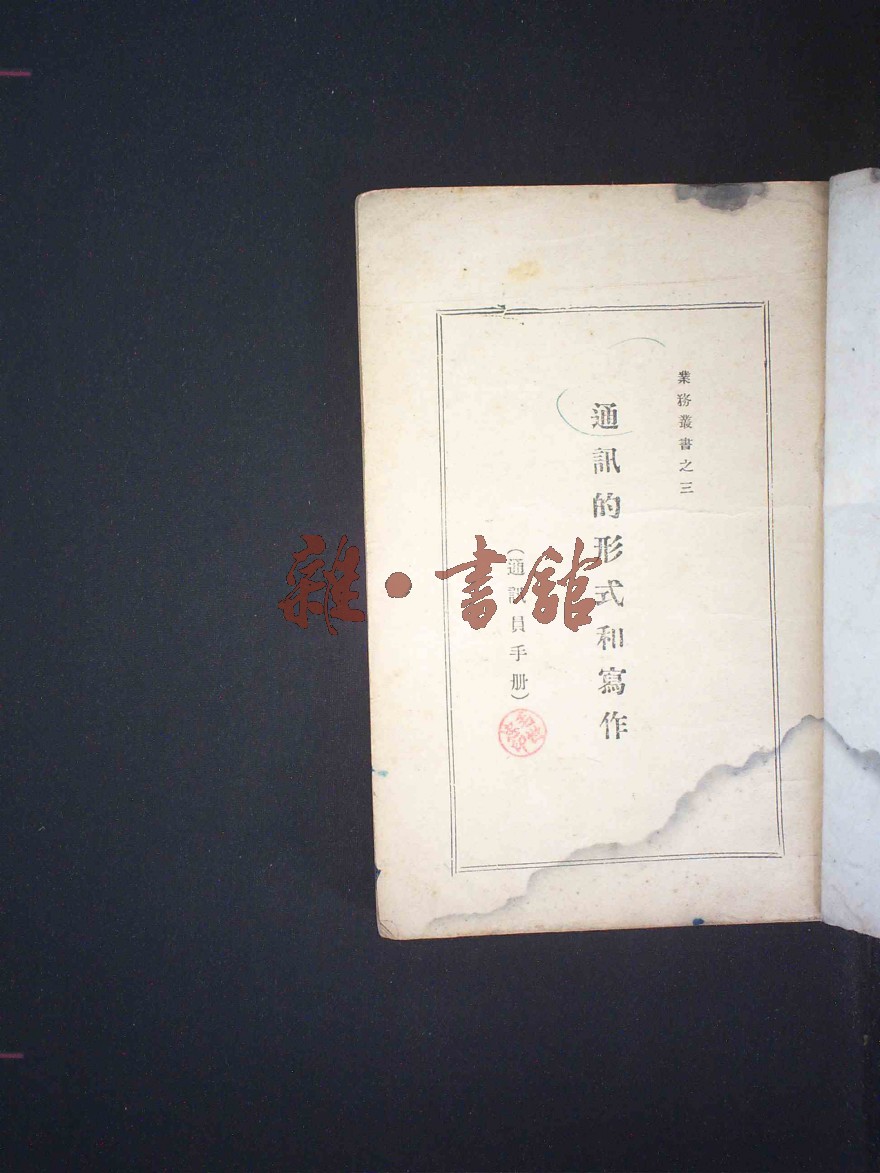 業務叢書之三
通訊的形式和寫作
(通訊員手册)
雜·書館